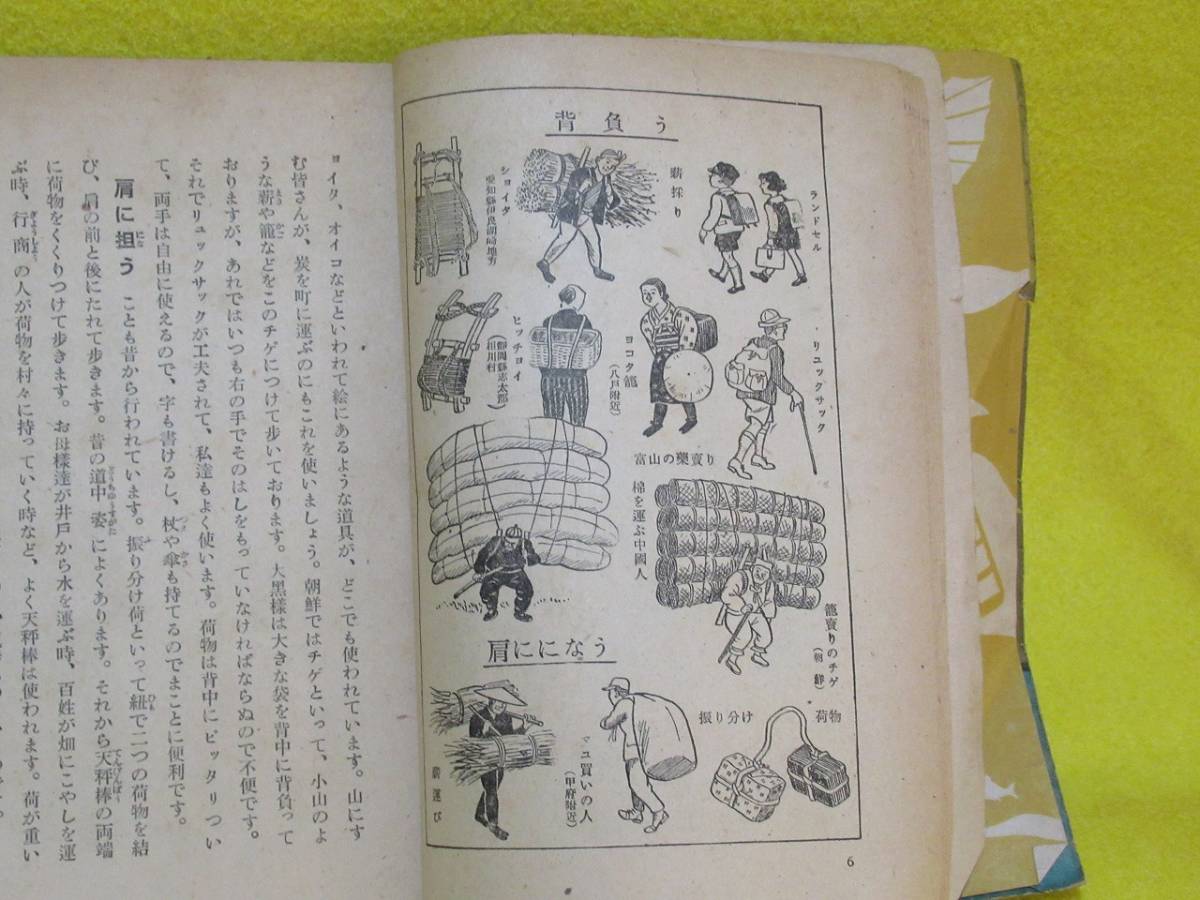 背負う
ランドセル
薪採り
ショイタ
愛知縣伊良湖崎地方
リュックサック
ヨコタ籠
(八戸附近)
ヒッチョイ
(靜岡縣志太郡
相川村)
富山の藥賣り
棉を運ぶ中國人
籠賣りのチゲ
(朝鮮)
肩にになう
振り分け 荷物
マユ買いの人
(甲府附近)
薪運び
6
ョイタ、オイコなどといわれて絵にあるような道具が、どこでも使われています。山にす
む皆さんが、炭を町に運ぶのにもこれを使いましょう。朝鮮ではチゲといって、小山のよ
うな薪や籠などをこのチゲにつけて歩いております。大黑樣は大きな袋を背中に背負って
おりますが、あれではいつも右の手でそのはしをもっていなければならぬので不便です。
それでリュックサックが工夫されて、私達もよく使います。荷物は背中にピッタリつい
て、両手は自由に使えるので、字も書けるし、杖や傘も持てるのでまことに便利です。
肩に担う　ことも昔から行われています。振り分け荷といって紐で二つの荷物を結
び、肩の前と後にたれて歩きます。昔の道中姿によくあります。それから天秤棒の両端
に荷物をくくりつけて歩きます。お母様達が井戸から水を運ぶ時、百姓が畑にこやしを運
ぶ時、行商の人が荷物を村々に持っていく時など、よく天秤棒は使われます。荷が重い